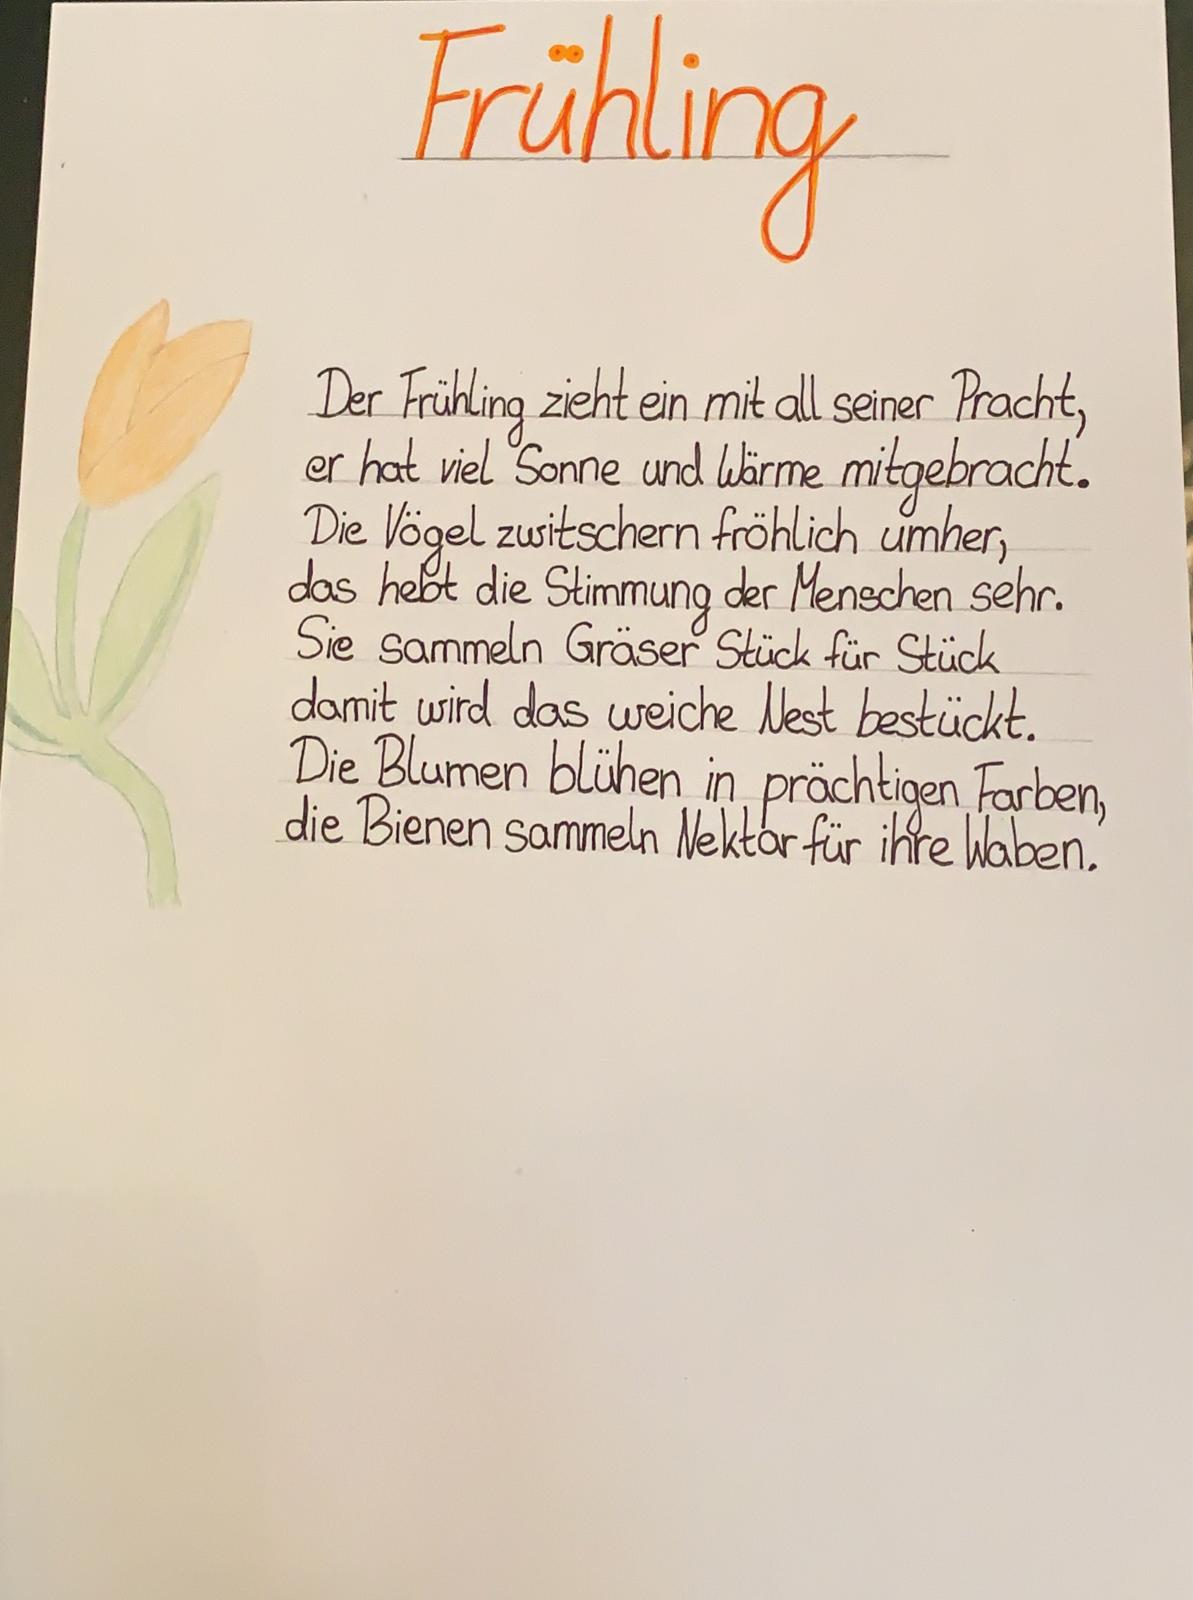 Frühling
Der Frühling zieht ein mit all seiner Pracht,
er hat viel Sonne und Wärme mitgebracht.
Die Vögel zwitschern fröhlich umher,
das hebt die Stimmung der Menschen sehr.
Sie sammeln Gräser Stück für Stück
damit wird das weiche Nest bestückt.
Die Blumen blühen in prächtigen Farben,
die Bienen sammeln Nektar für ihre Waben.